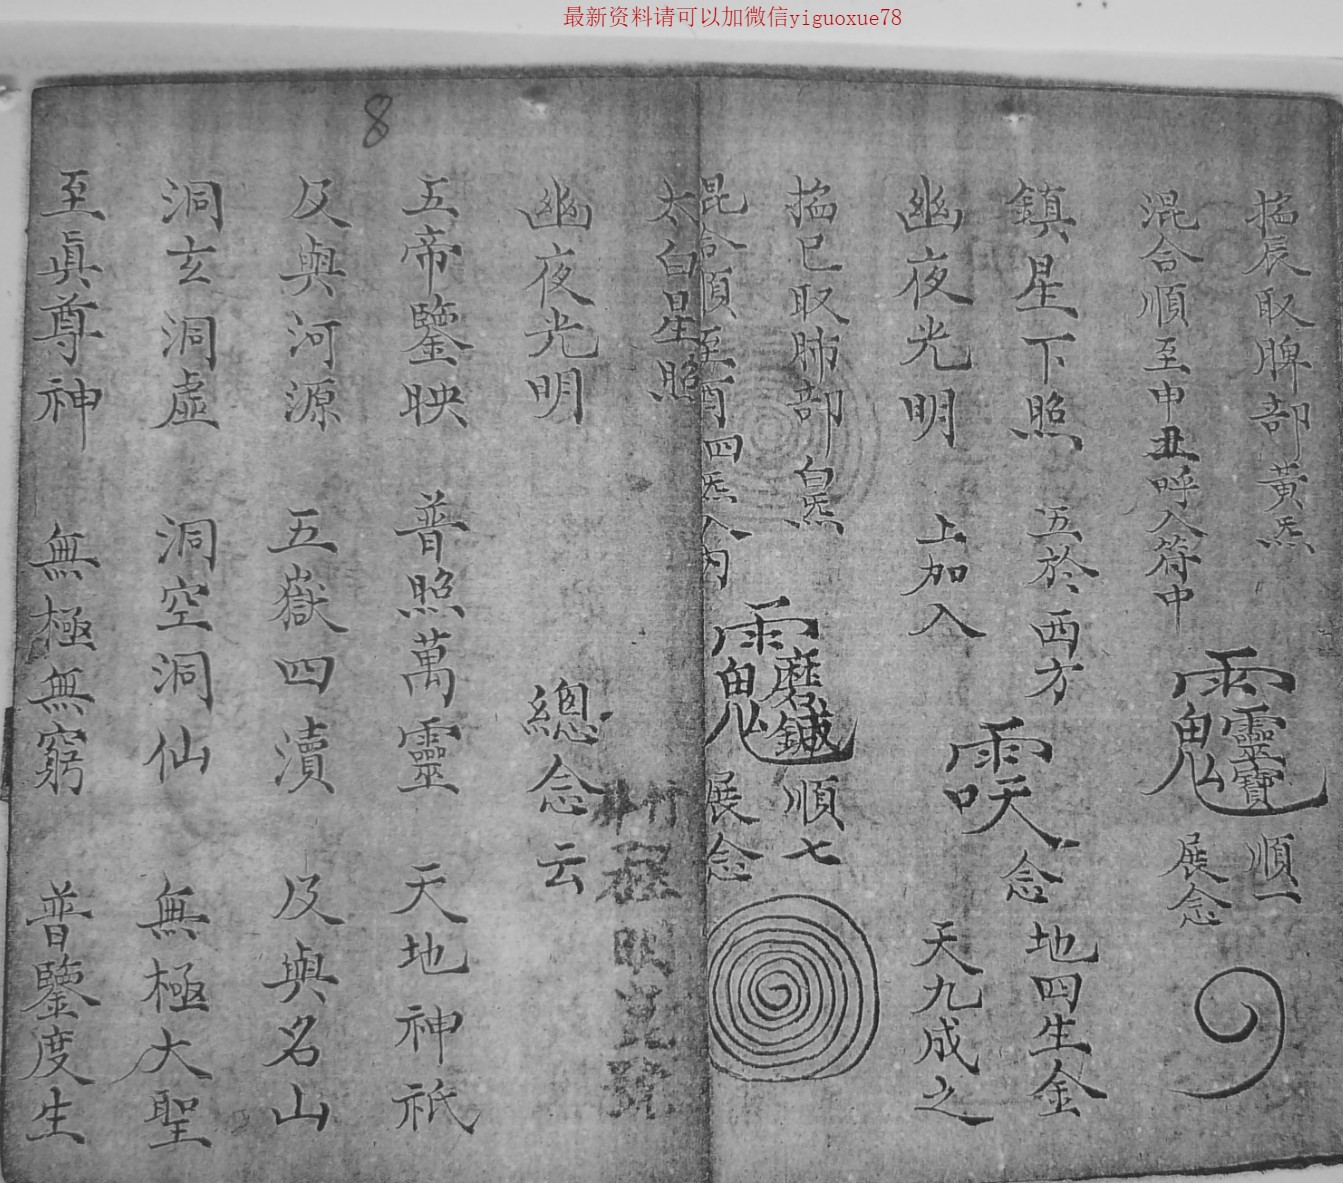 最新资料请可以加微信yiguoxue78
8
掐辰取脾部黃炁
混合順至申丑呼入符中
靈寶 順一
展念
鎮星下照 五於西方
幽夜光明 上加入
念 地四生金
天九成之
掐巳取肺部白炁
混合順至酉四炁入内
順七
展念
太白星照
幽夜光明 總念云
五帝鑒映 普照萬靈 天地神祇
及與河源 五嶽四瀆 及與名山
洞玄洞虛 洞空洞仙 無極大聖
至眞尊神 無極無窮 普鑒度生